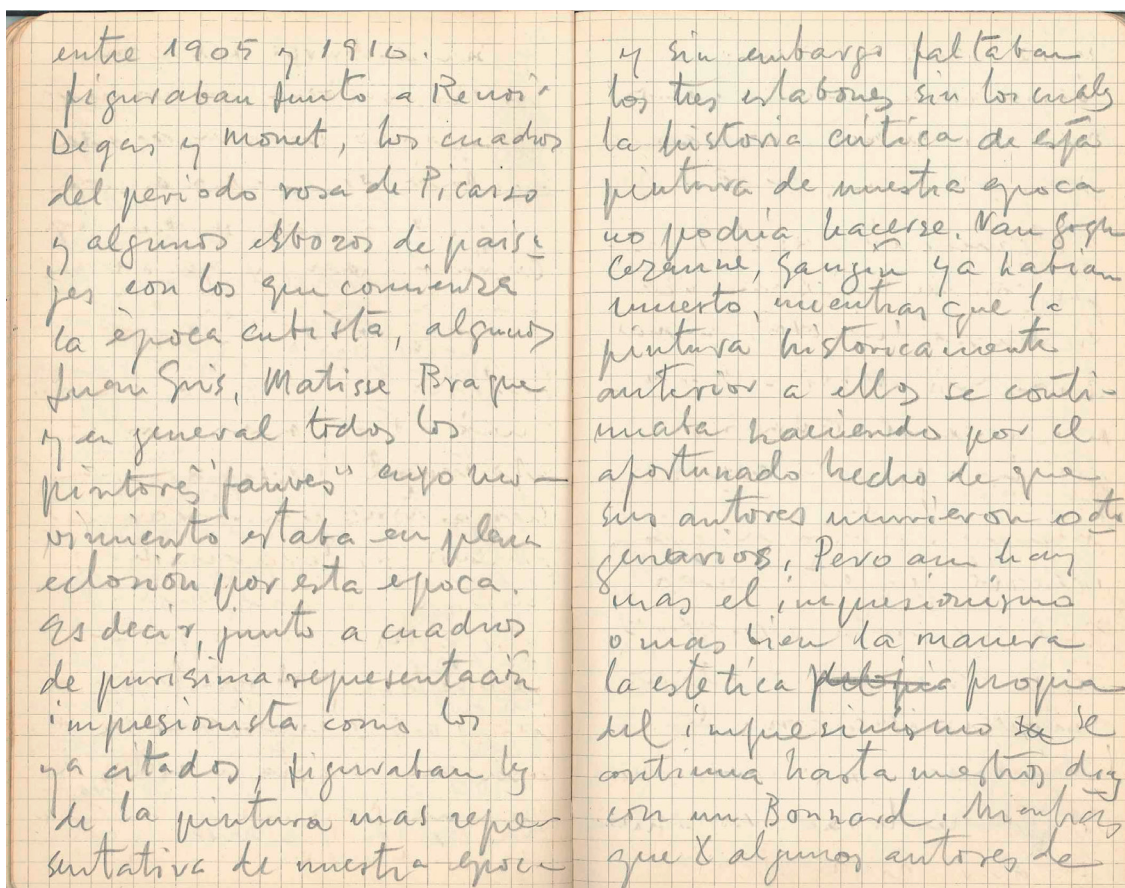 entre 1905 y 1910.
figuraban junto a Renoir
Degas y Monet, los cuadros
del periodo rosa de Picasso
y algunos esbozos de paisa
jes con los que comienza
la época cubista, algunos
Juan Gris, Matisse Braque
y en general todos los
pintores "fauves" cuyo mo-
vimiento estaba en plena
eclosión por esta epoca.
Es decir, junto a cuadros
de purisima representación
impresionista como los
ya citados, figuraban los
de la pintura mas repre
sentativa de nuestra epoca
y sin embargo faltaban
los tres eslabones sin los cuales
la historia critica de esta
pintura de nuestra epoca
no podria hacerse. Van Gogh
Cezanne, Gaugin ya habian
muerto, mientras que la
pintura historicamente
anterior a ellos se conti-
nuaba haciendo por el
afortunado hecho de que
sus autores murieron octo
genarios, Pero aun hay
mas el impresionismo
o mas bien la manera
la estetica propia
del impresinismo se
continua hasta nuestros dias
con un Bonnard. Mientras
que X algunos autores de